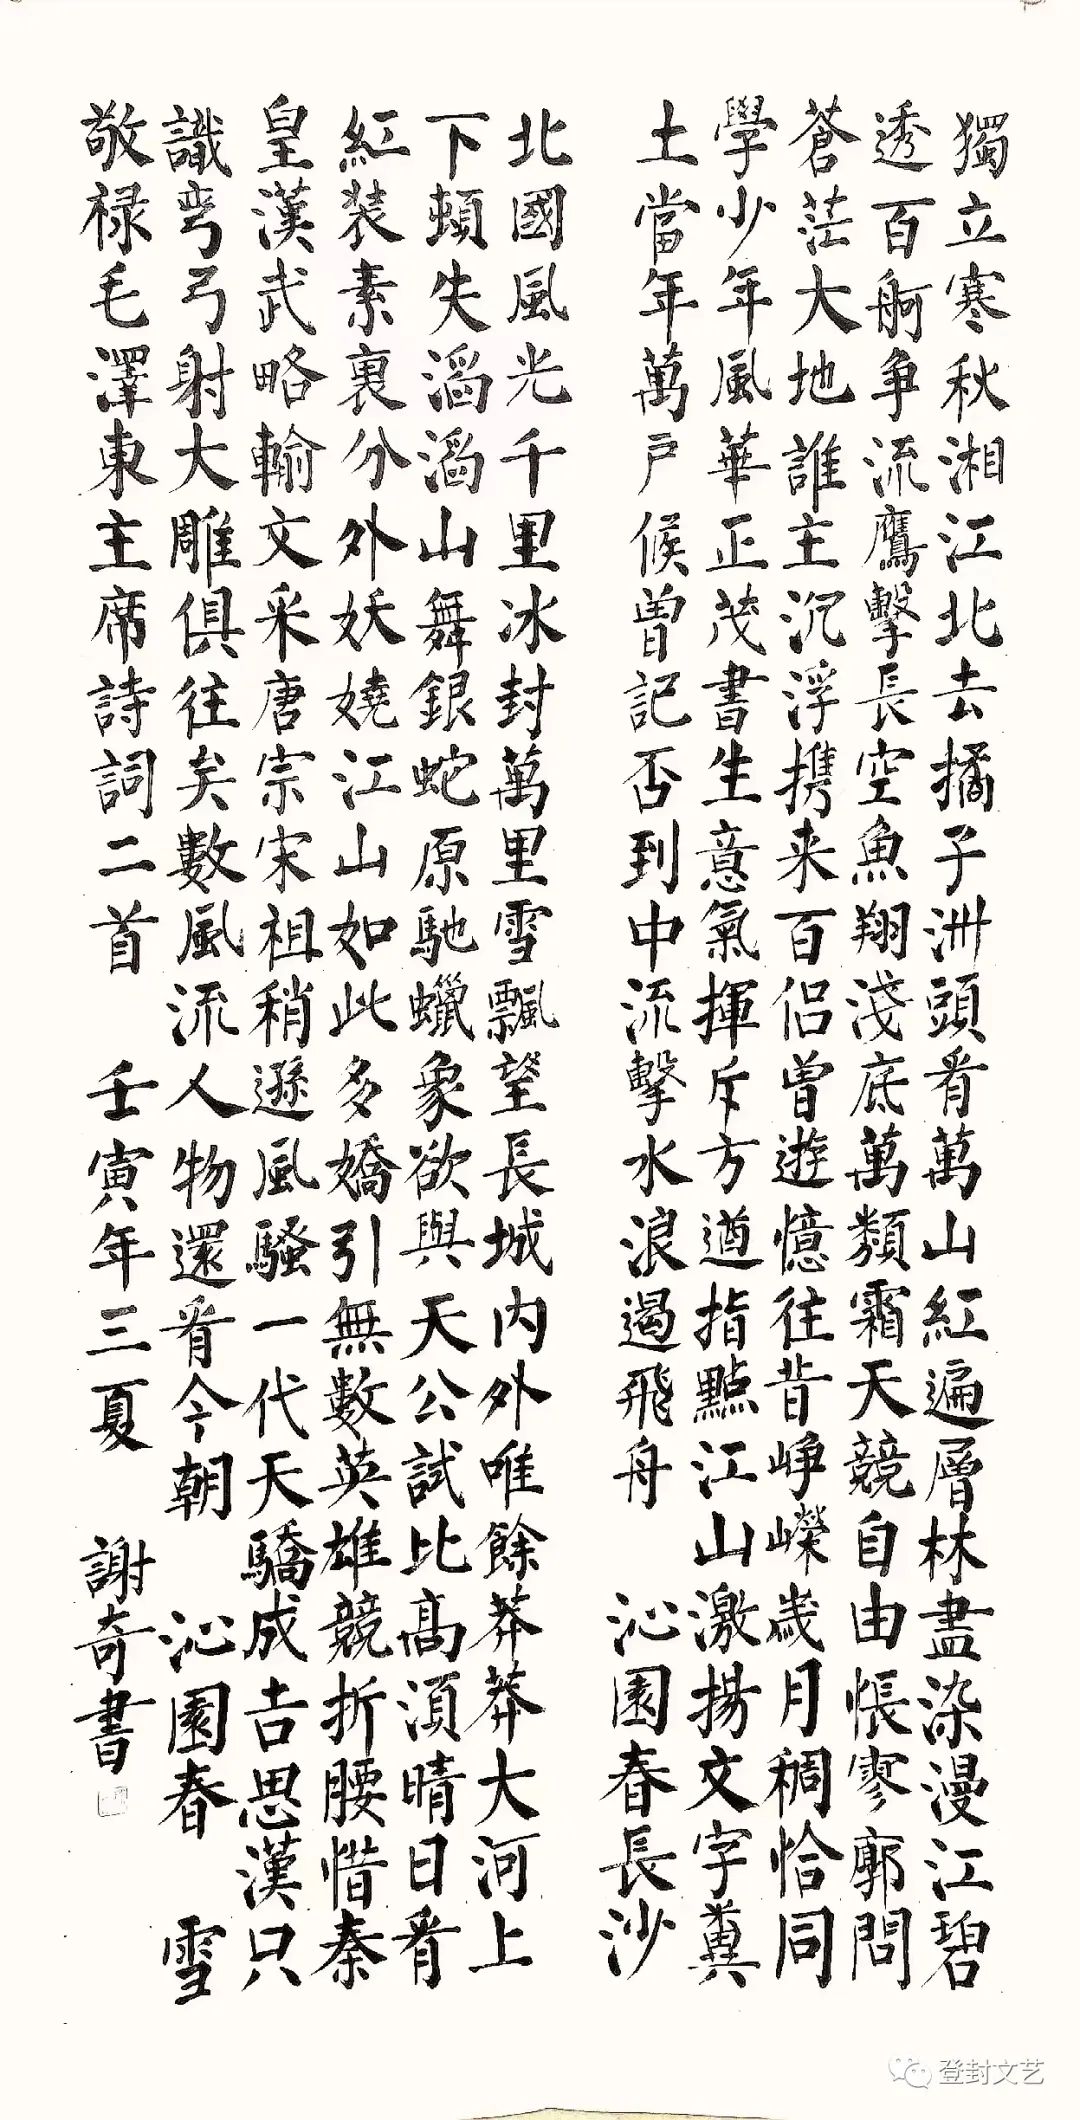 獨立寒秋湘江北去橘子洲頭看萬山紅遍層林盡染漫江碧
透百舸争流鷹擊長空魚翔淺底萬類霜天競自由悵寥廓問
蒼茫大地誰主沉浮携来百侣曾遊憶往昔崢嶸歲月稠恰同
學少年風華正茂書生意氣揮斥方遒指點江山激揚文字糞
土當年萬户候曾記否到中流擊水浪遏飛舟 沁園春長沙
北國風光千里冰封萬里雪飄望長城内外唯餘莽莽大河上
下頓失滔滔山舞銀蛇原馳蠟象欲與天公試比髙湏晴日看
紅装素裹分外妖嬈江山如此多嬌引無數英雄競折腰惜秦
皇漢武略輸文采唐宗宋祖稍遜風騷一代天驕成吉思漢只
識彎弓射大雕俱往矣數風流人物還看今朝 沁園春 雪
敬禄毛澤東主席詩詞二首 壬寅年三夏 謝奇書
登封文艺